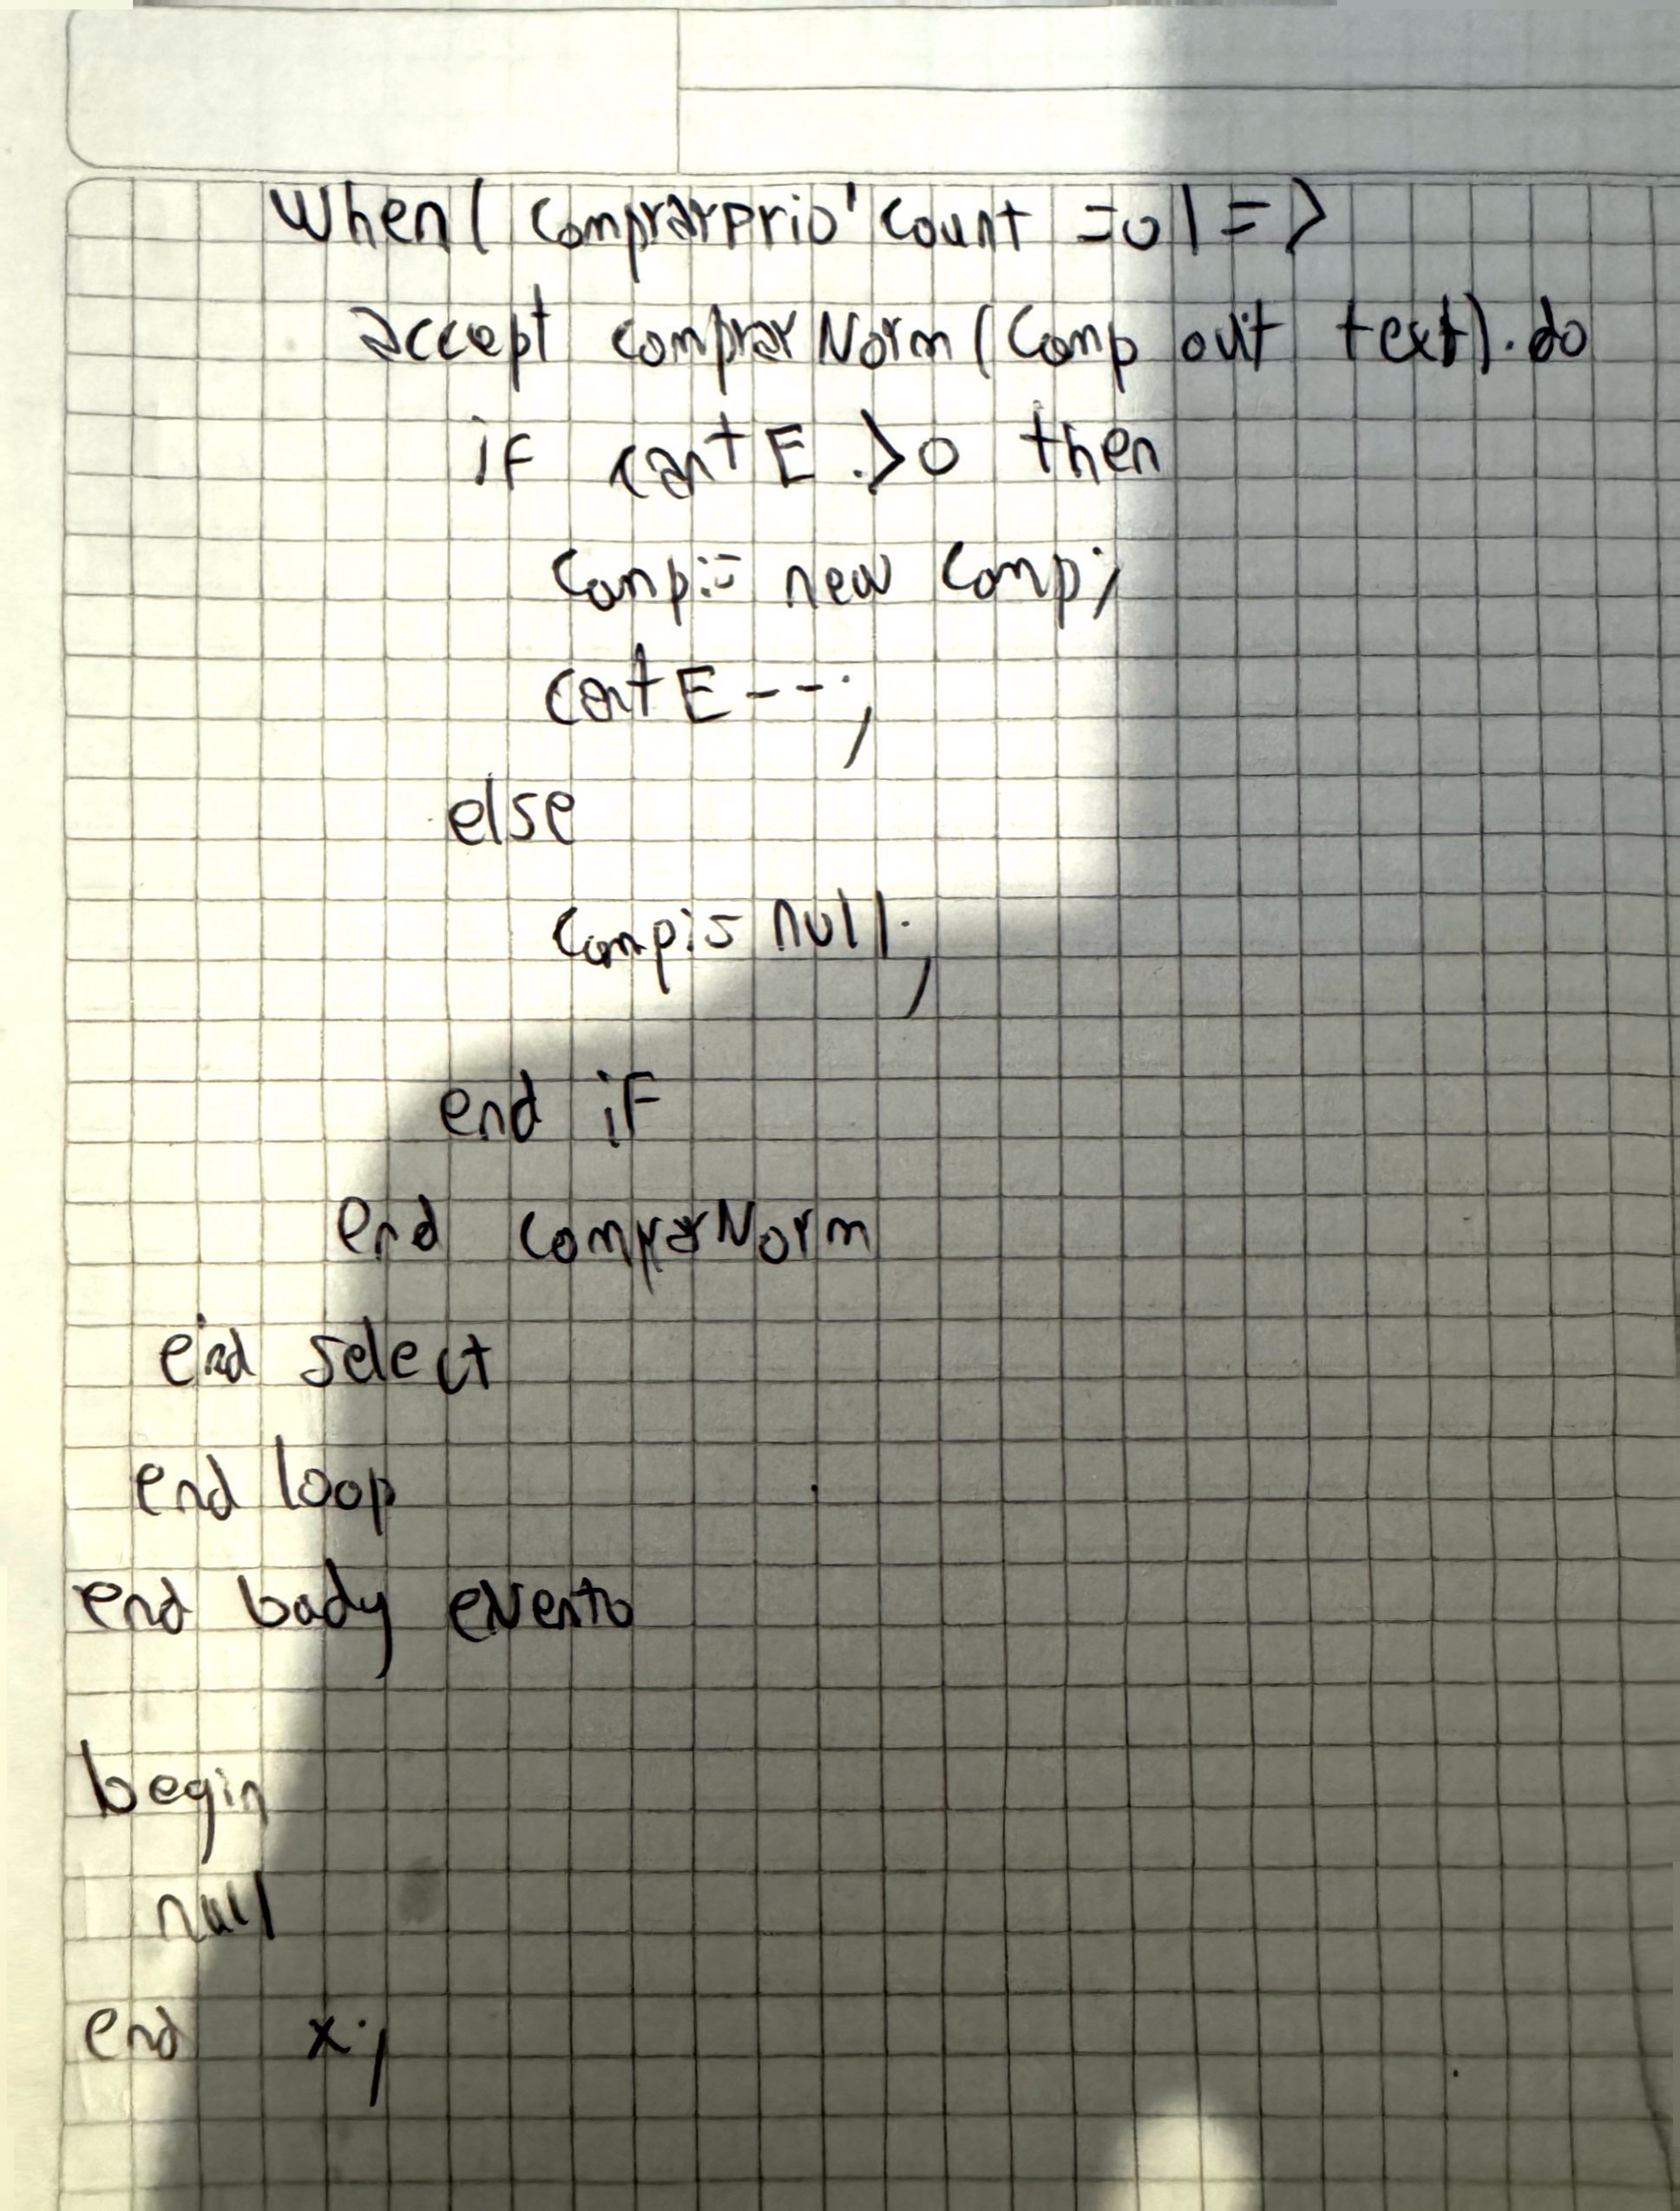 When( comprarprio'count =0) =>
accept comprarNorm(Comp out text).do
if cantE >0 then
Comp:= new Comp;
cantE--;
else
Comp:= null;
end if
end comprarNorm
end select
end loop
end body evento
begin
null
end x;